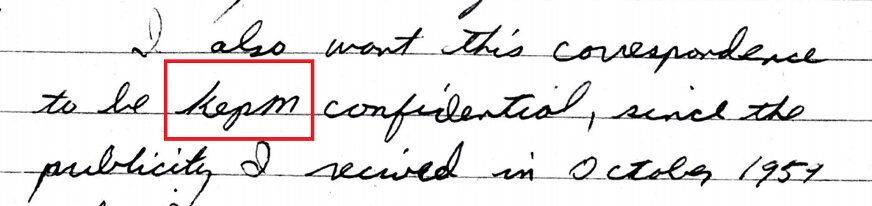 I also want this correspondence
to be kepm confidential, since the
publicity I recived in October 1957